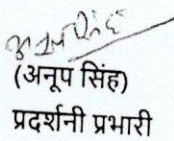 (अनूप सिंह)
प्रदर्शनी प्रभारी